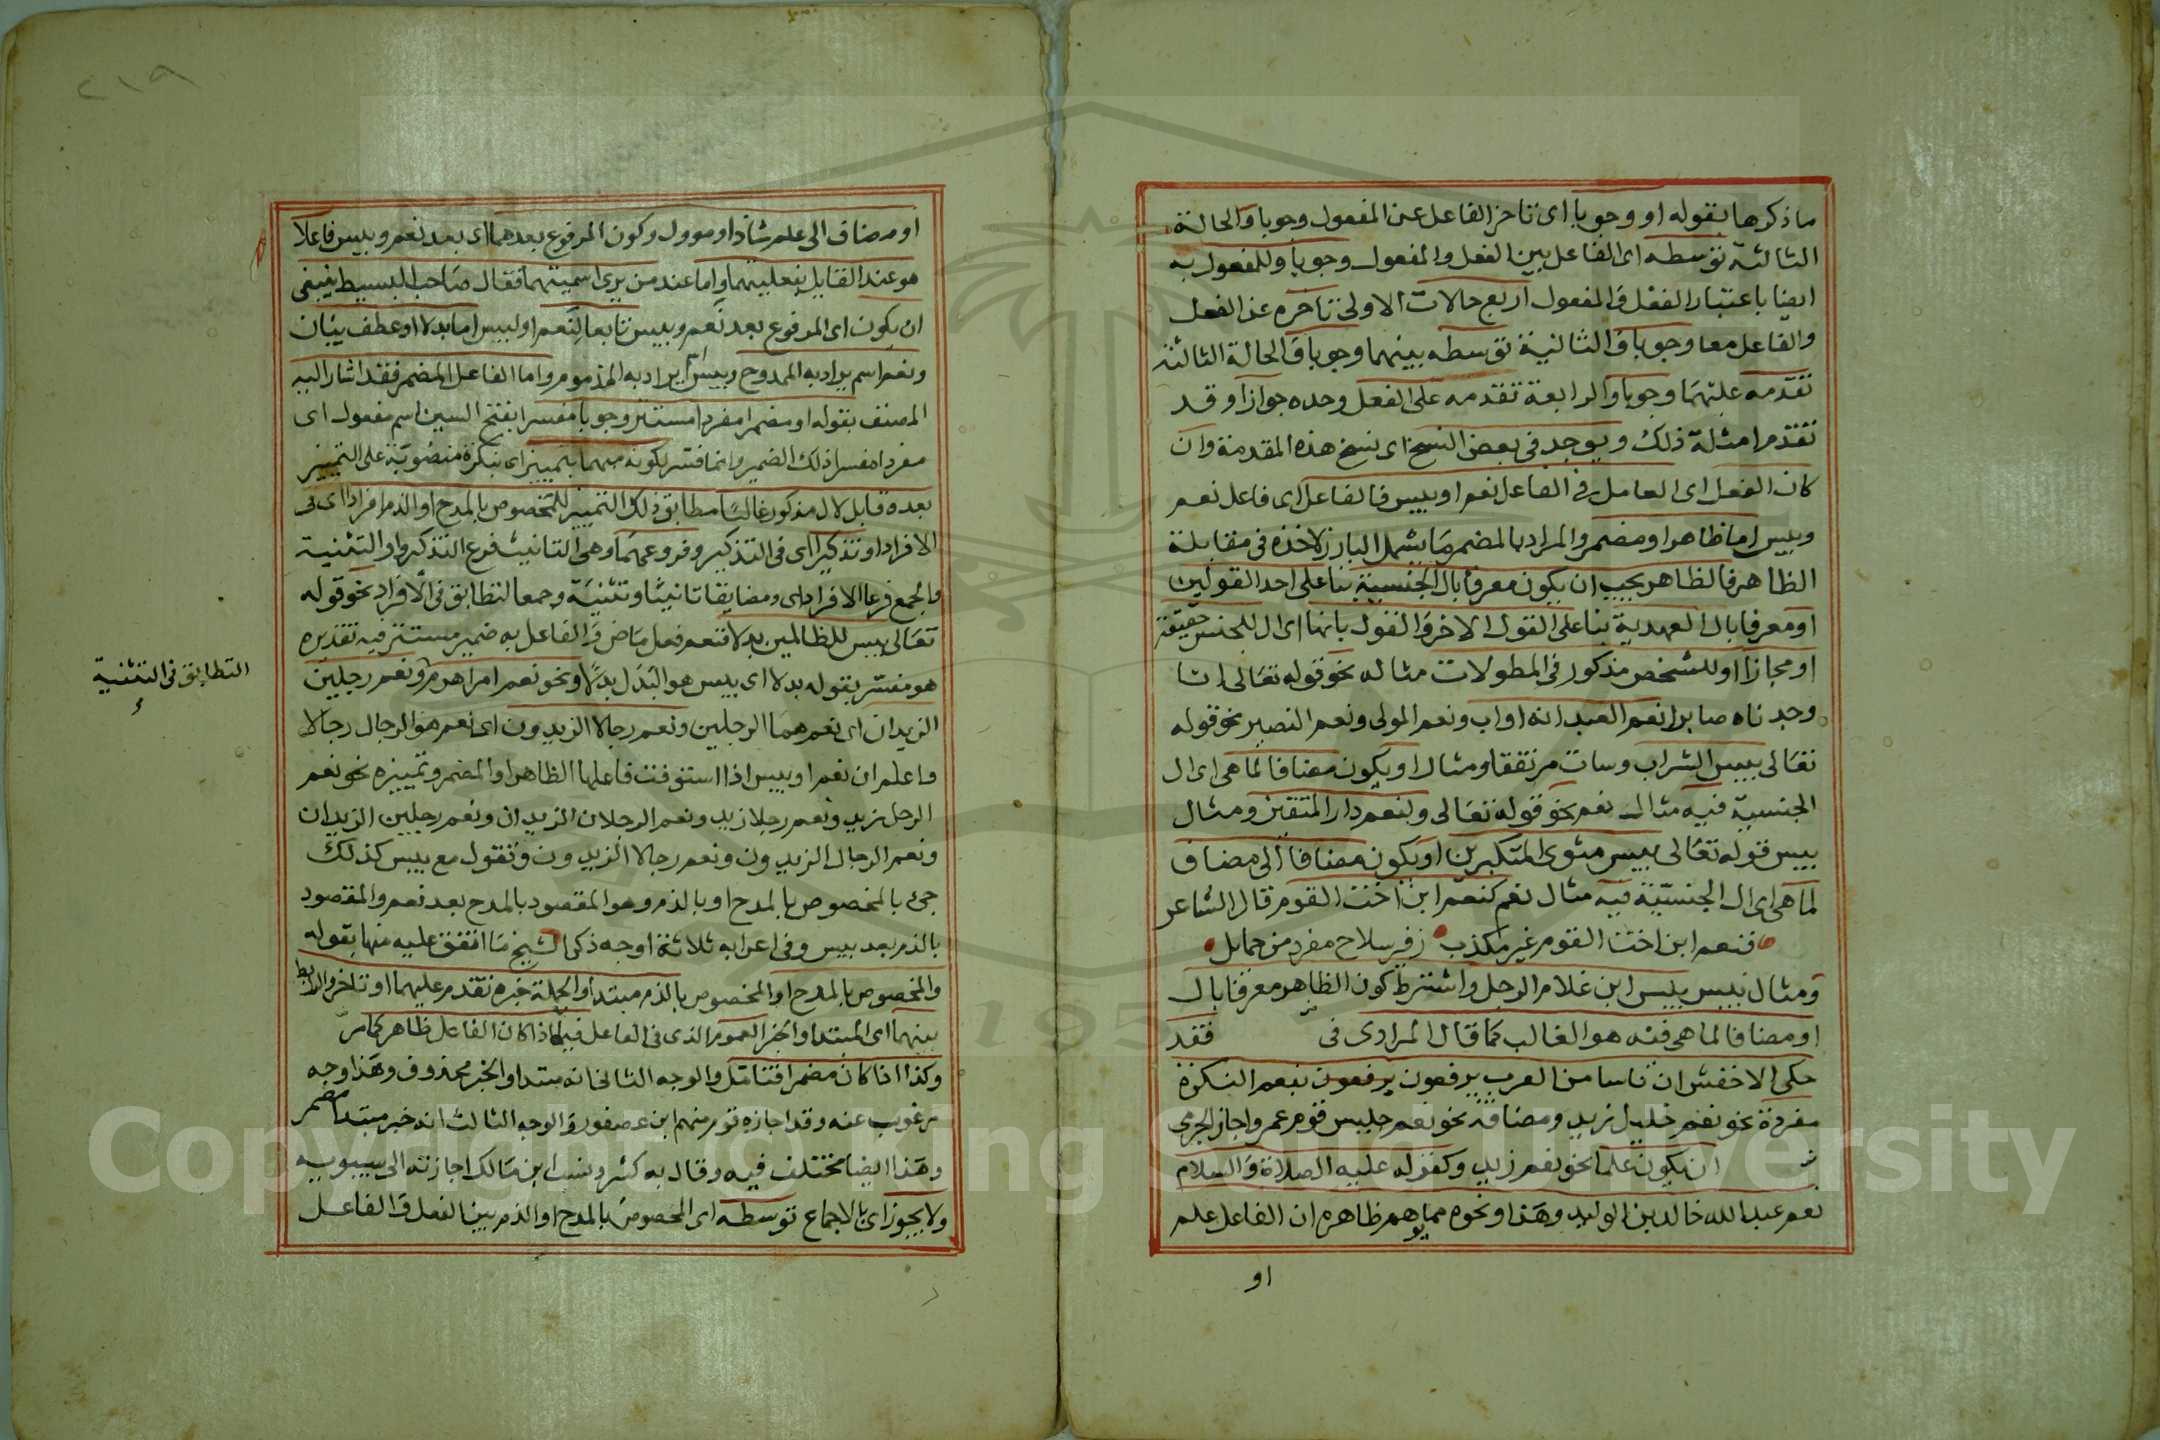 ما ذكرها بقوله او وجوبا اى تاخر الفاعل عن المفعول وجوبا والحالة
الثالثة توسطه اى الفاعل بين الفعل والمفعول وجوبا وللمفعول به
ايضا باعتبار الفعل والمفعول اربع حالات الاولى تاخره عن الفعل
والفاعل معا وجوبا والثانية توسطه بينهما وجوبا والحالة الثالثة
تقدمه عليهما وجوبا والرابعة تقدمه على الفعل وحده جوازا وقد
تقدم امثلة ذلك ويوجد فى بعض النسخ اى نسخ هذه المقدمة وان
كان الفعل اى العامل فى الفاعل نعم او بيس فالفاعل اى فاعل نعم
وبيس اما ظاهر او مضمر والمراد بالمضمر ما يشمل البارز لاخذه فى مقابلة
الظاهر فالظاهر يجب ان يكون معرفا بال الجنسية بنا على احد القولين
او معرفا بال العهدية بنا على القول الاخر والقول بانها اى ال للجنس حقيقة
او مجازا او للشخص مذكور فى المطولات مثاله نحو قوله تعالى انا
وجدناه صابرا نعم العبد انه اواب ونعم المولى ونعم النصير نحو قوله
تعالى بيس الشراب وسات مرتفقا ومثال او يكون مضافا لما هى اى ال
الجنسية فيه مثال نعم نحو قوله تعالى ولنعم دار المتقين ومثال
بيس قوله تعالى بيس مثوى المتكبرين او يكون مضافا الى مضاف
لما هى اى ال الجنسية فيه مثال نعم كنعم ابن اخت القوم قال الشاعر
فنعم ابن اخت القوم غير مكذب زهير سلاح مفرد من حمايل
ومثال بيس بيس ابن غلام الرجل واشترط كون الظاهر معرفا بال
او مضافا لما هى فيه هو الغالب كما قال المرادى فى فقد
حكى الاخفش ان ناسا من العرب يرفعون يرفعون بنعم النكرة
مفردة نحو نعم خليل زيد ومضافة نحو نعم جليس قوم عمرو واجاز الجرمى
ان يكون علما نحو نعم زيد وكقوله عليه الصلاة والسلام
نعم عبد الله خالد بن الوليد وهذا ونحوه مما يوهم ظاهره ان الفاعل علم
او
٢١٩
او مضاف الى علم شاذ او موول وكون المرفوع بعدهما اى بعد نعم وبيس فاعلا
هو عند القايل بفعليتهما واما عند من يرى اسميتهما فقال صاحب البسيط ينبغى
ان يكون اى المرفوع بعد نعم وبيس تابعا لنعم او لبيس اما بدلا او عطف بيان
ونعم اسم يراد به الممدوح وبيس اسم يراد به المذموم واما الفاعل المضمر فقد اشار اليه
المصنف بقوله او مضمرا مفردا مستتر وجوبا مفسرا بفتح السين اسم مفعول اى
مفردا مفسرا ذلك الضمير وانما فسر بكونه مبهما بتمييز اى بنكرة منصوبة على التمييز
بعده قابل لال مذكور غالبا مطابق ذلك التمييز للمخصوص بالمدح او الذم افرادا اى فى
الافراد او تذكيرا اى فى التذكير وفروعهما وهى التانيث فرع التذكير او التثنية
والجمع فرعا الافراد اى ومضايقا تانيثا وتثنية وجمعا التطابق فى الافراد نحو قوله
تعالى بيس للظالمين بدلا فنعم فعل ماض والفاعل به ضمير مستتر فيه تقديره
هو مفسر بقوله بدلا اى بيس هو البدل بدلا ونحو نعم امرا هرم ونعم رجلين
التطابق فى التثنية
الزيدان اى نعم هما الرجلين ونعم رجالا الزيدون اى نعم هو الرجال رجالا
واعلم ان نعم او بيس اذا استوفت فاعلها الظاهر او المضمر وتمييزه نحو نعم
الرجل زيد ونعم رجلا زيد ونعم الرجلان الزيدان ونعم رجلين الزيدان
ونعم الرجال الزيدون ونعم رجالا الزيدون وتقول مع بيس كذلك
جئ بالمخصوص بالمدح او بالذم وهو المقصود بالمدح بعد نعم والمقصود
بالذم بعد بيس وفى اعرابه ثلاثة اوجه ذكر الشيخ ما اتفق عليه منها بقوله
والمخصوص بالمدح او المخصوص بالذم مبتدا والجملة خبره تقدم عليهما او تاخر والرابط
بينهما اى المبتدا والخبر العموم الذى فى الفاعل فيما اذا كان الفاعل ظاهر كما مر
وكذا اذا كان مضمرا فتامل والوجه الثانى انه مبتدا والخبر محذوف وهذا وجه
مرغوب عنه وقد اجازه قوم منهم ابن عصفور والوجه الثالث انه خبر مبتدا مضمر
وهذا ايضا مختلف فيه وقال به كثير ونسب ابن مالك اجازته الى سيبويه
ولا يجوز اى بالاجماع توسطه اى المخصوص بالمدح او الذم بين الفعل والفاعل
Copyright © King Saud University